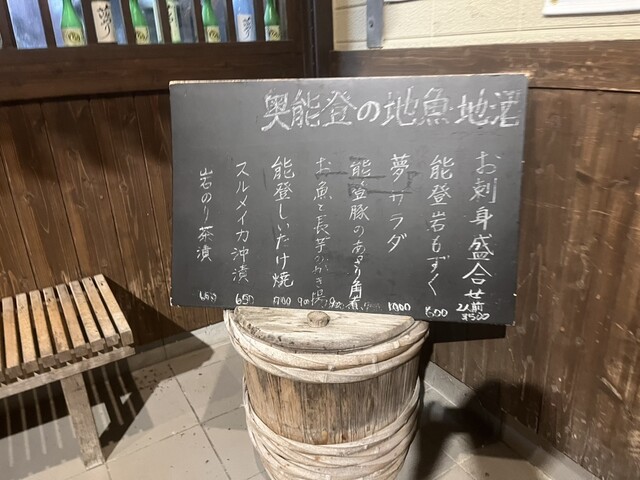 奥能登の地魚地酒
お刺身盛合せ 2人前 ¥1500
能登岩もずく 600
夢サラダ 1000
能登豚のあっさり角煮
お魚と長芋のかき揚
能登しいたけ焼
スルメイカ沖漬 650
岩のり茶漬 650
夢